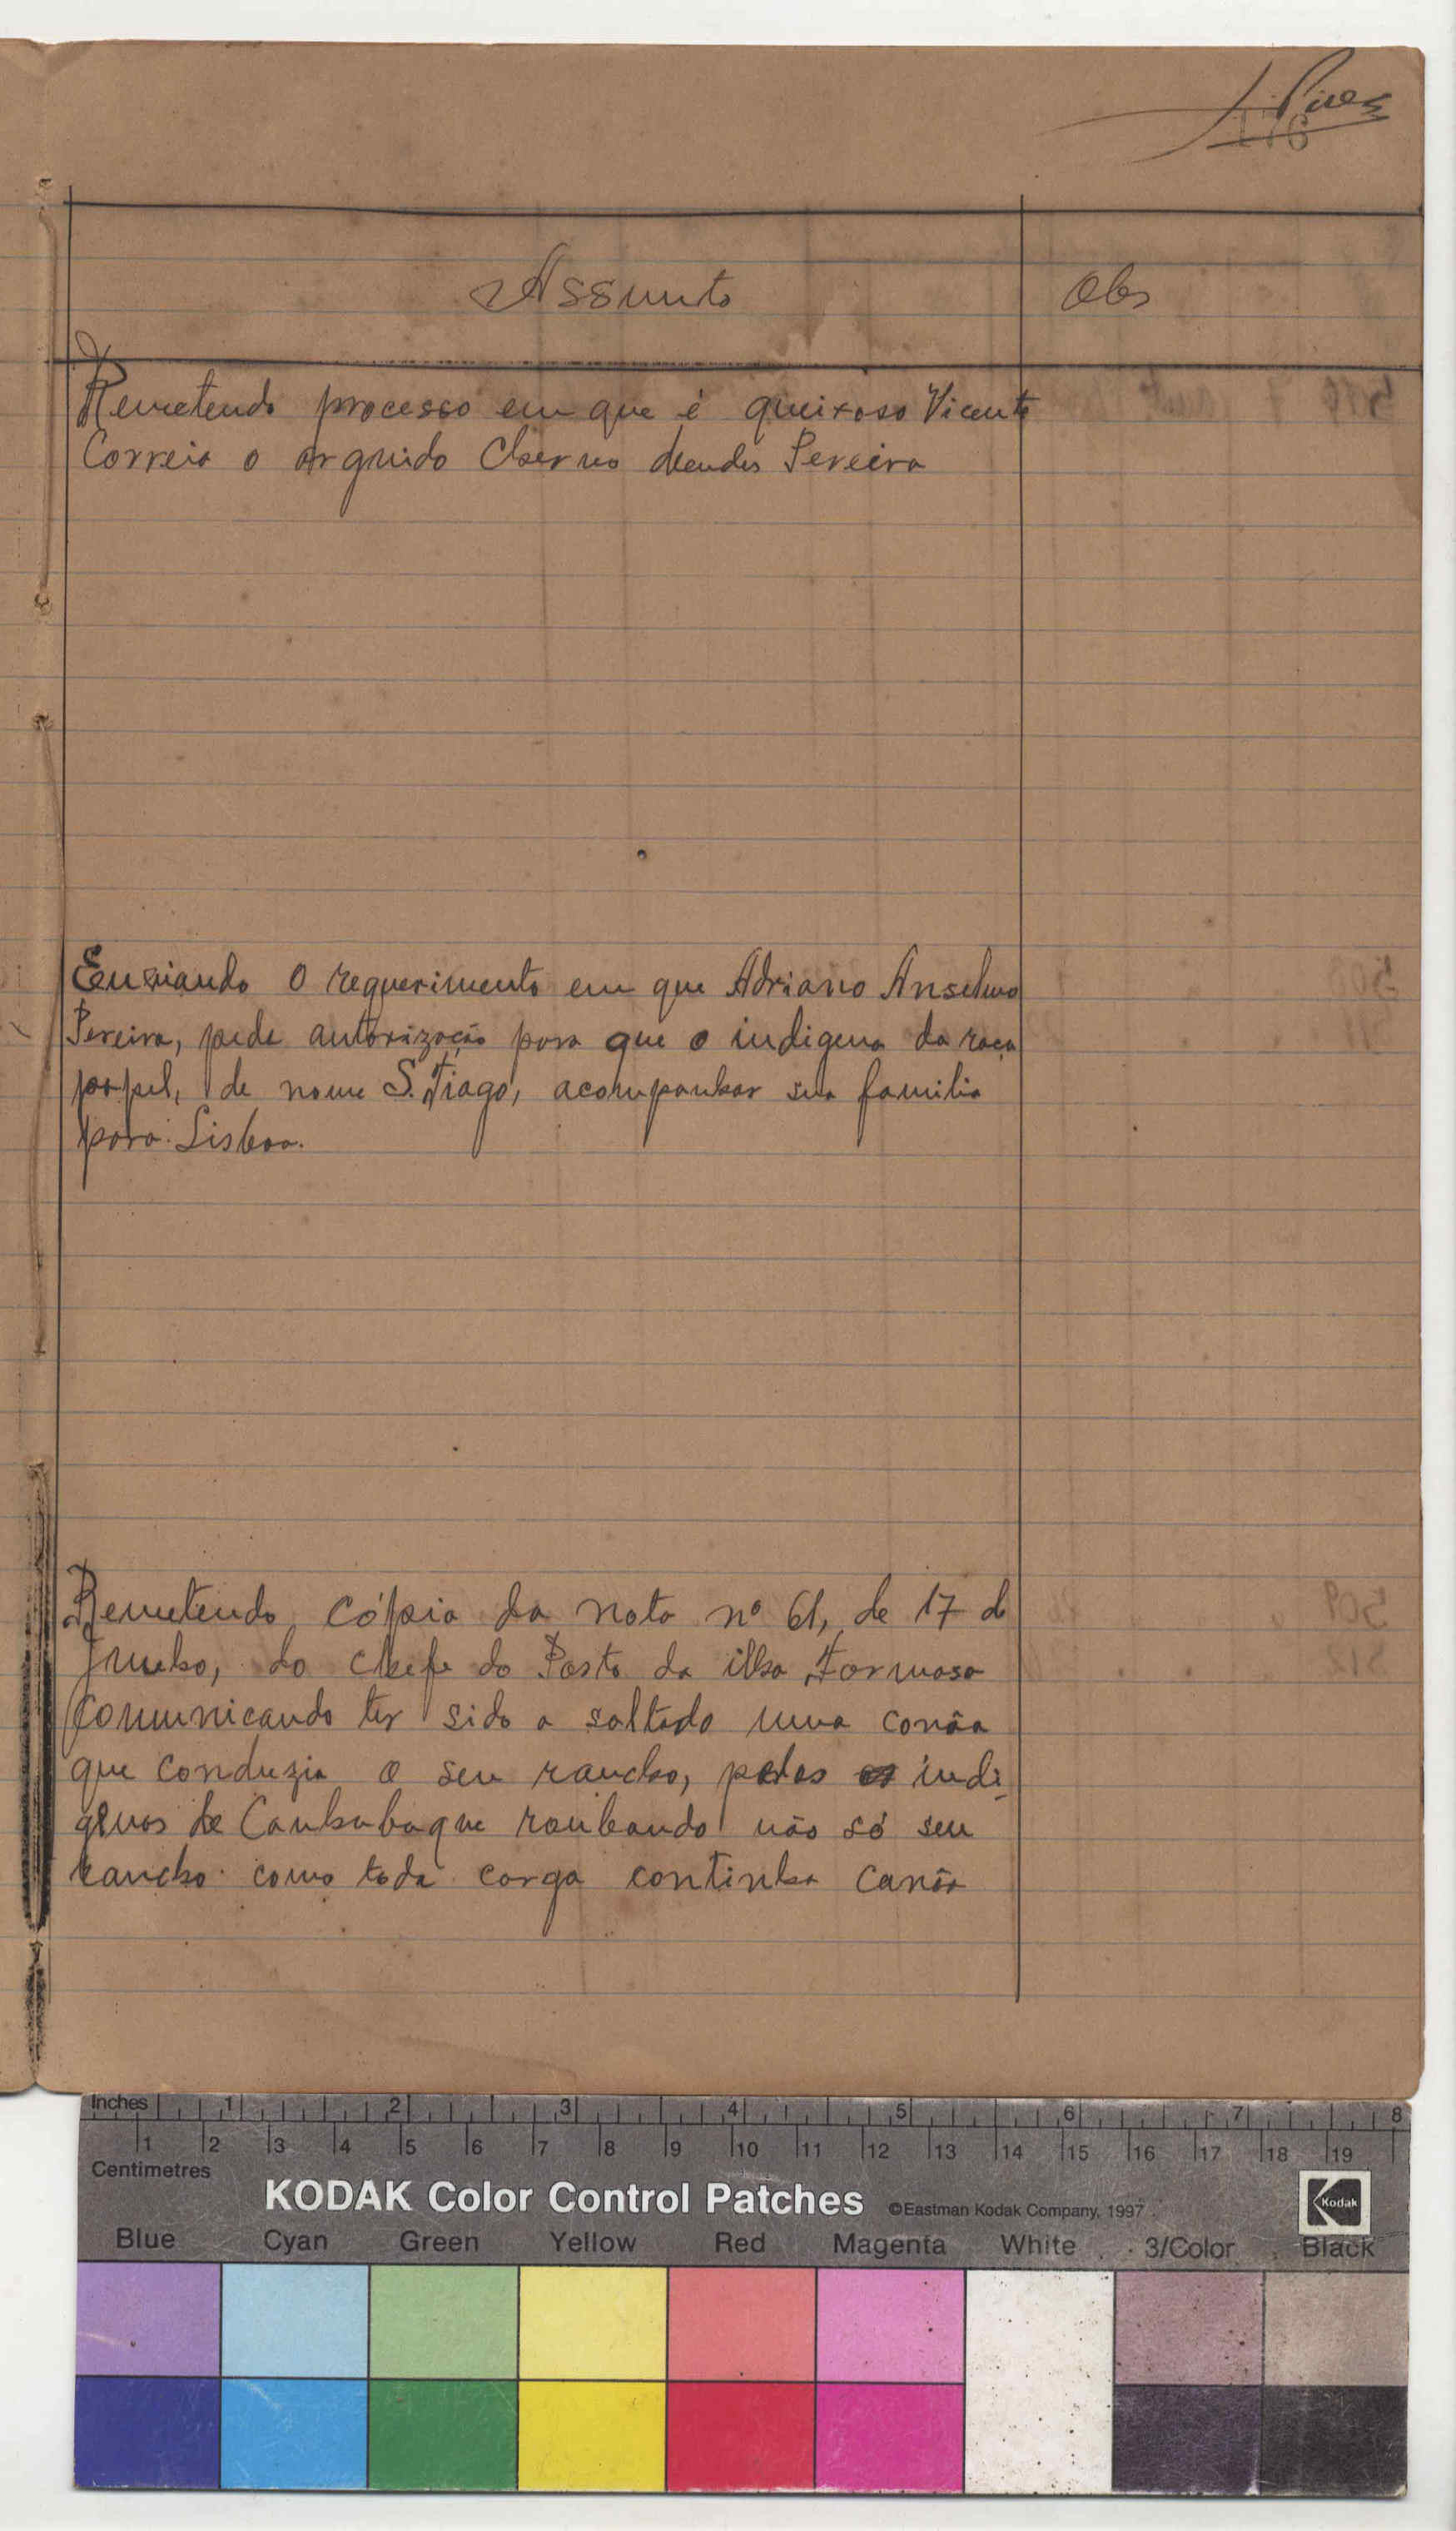 J. Pires
176
Assunto
Obs
Remetendo processo em que é queixoso Vicente
Correia o arguido Cherno Mendes Pereira
Enviando o requerimento em que Adriano Anselmo
Pereira, pede autorização para que o indigena da raça
papel, de nome S. Tiago, acompanhar sua familia
para Lisboa.
Remetendo cópia da nota nº 61, de 17 de
Junho, do chefe do Posto da ilha Formosa
comunicando ter sido a saltado uma canôa
que conduzia o seu rancho, pelos indi
genas de Canhabaque roubando não só seu
rancho como toda carga continha canôa
Inches 1 2 3 4 5 6 7 8
1 2 3 4 5 6 7 8 9 10 11 12 13 14 15 16 17 18 19
Centimetres
KODAK Color Control Patches ©Eastman Kodak Company, 1997 Kodak
Blue Cyan Green Yellow Red Magenta White 3/Color Black